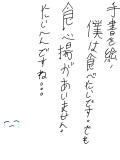 手書を絵、
僕は食べたいです。でも
食べ揚があいません。
たいへんですね。。。